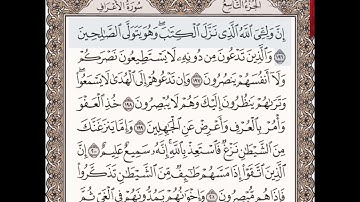 الجزء التاسع
سورة الأعراف
إِنَّ وَلِـِّۧيَ ٱللَّهُ ٱلَّذِي نَزَّلَ ٱلۡكِتَٰبَۖ وَهُوَ يَتَوَلَّى ٱلصَّٰلِحِينَ
١٩٦ وَٱلَّذِينَ تَدۡعُونَ مِن دُونِهِۦ لَا يَسۡتَطِيعُونَ نَصۡرَكُمۡ
وَلَآ أَنفُسَهُمۡ يَنصُرُونَ ١٩٧ وَإِن تَدۡعُوهُمۡ إِلَى ٱلۡهُدَىٰ لَا يَسۡمَعُواْۖ
وَتَرَىٰهُمۡ يَنظُرُونَ إِلَيۡكَ وَهُمۡ لَا يُبۡصِرُونَ ١٩٨ خُذِ ٱلۡعَفۡوَ
وَأۡمُرۡ بِٱلۡعُرۡفِ وَأَعۡرِضۡ عَنِ ٱلۡجَٰهِلِينَ ١٩٩ وَإِمَّا يَنزَغَنَّكَ
مِنَ ٱلشَّيۡطَٰنِ نَزۡغٞ فَٱسۡتَعِذۡ بِٱللَّهِۚ إِنَّهُۥ سَمِيعٌ عَلِيمٌ ٢٠٠ إِنَّ
ٱلَّذِينَ ٱتَّقَوۡاْ إِذَا مَسَّهُمۡ طَٰٓئِفٞ مِّنَ ٱلشَّيۡطَٰنِ تَذَكَّرُواْ
فَإِذَا هُم مُّبۡصِرُونَ ٢٠١ وَإِخۡوَٰنُهُمۡ يَمُدُّونَهُمۡ فِي ٱلۡغَيِّ ثُمَّ